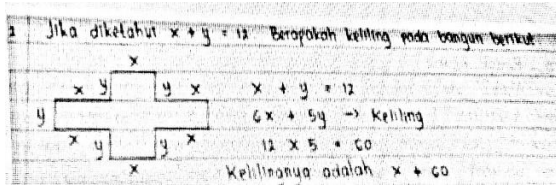 2 Jika diketahui x + y = 12 Berapakah keliling pada bangun berikut
x
x y y x
y
x y y x
x
x + y = 12
6x + 5y → Keliling
12 x 5 = 60
Kelilingnya adalah x + 60